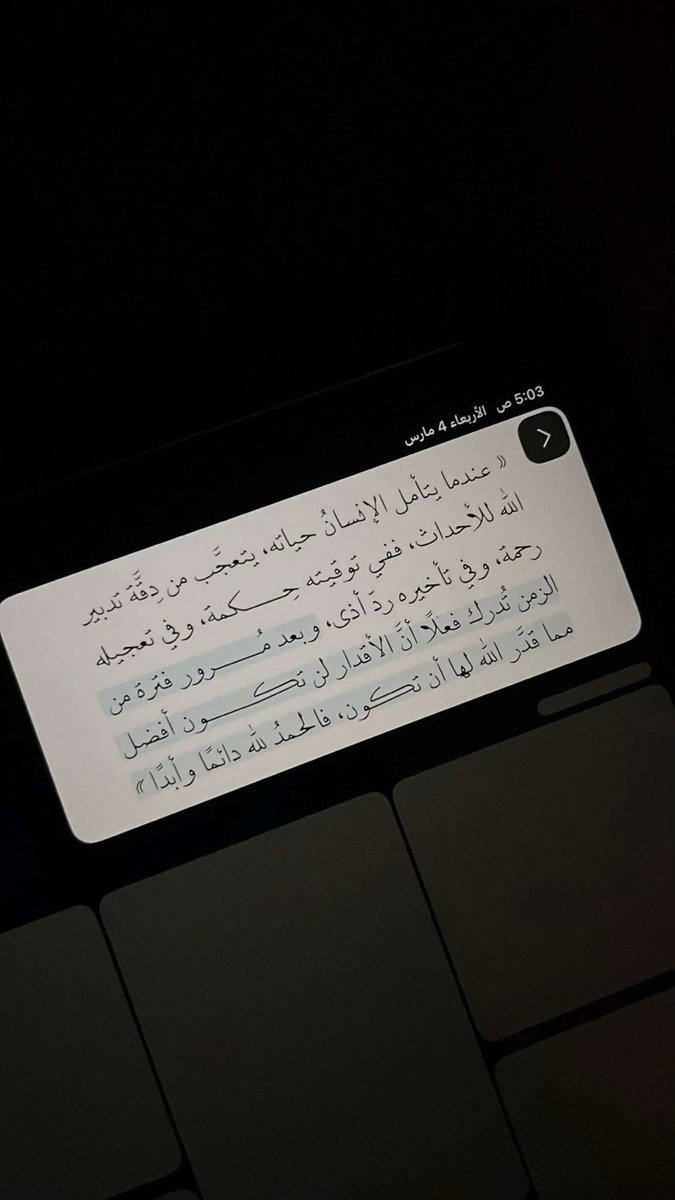 5:03 ص الأربعاء 4 مارس
« عندما يتأمل الإنسانُ حياته، يتعجَّب من دِقَّة تدبير
الله للأحداث، ففي توقيته حِكمة، وفي تعجيله
رحمة، وفي تأخيره ردّ أذى، وبعد مُرور فترة من
الزمن تُدرك فعلًا أنَّ الأقدار لن تكون أفضل
مما قدَّر الله لها أن تكون، فالحمدُ لله دائمًا وأبدًا »